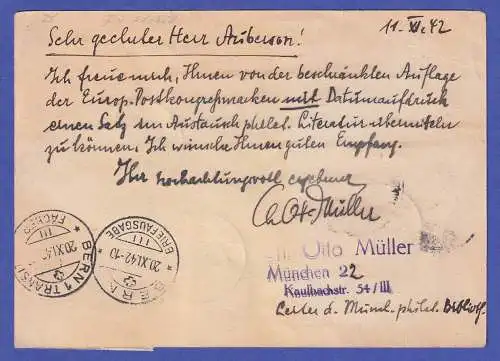 11. XI. 42
Sehr geehrter Herr Auberson!
Ich freue mich, Ihnen von der beschränkten Auflage
der Europ. Postkongreßmarken mit Datumaufdruck
einen Satz im Austausch philat. Literatur übermitteln
zu können. Ich wünsche Ihnen guten Empfang.
Ihr hochachtungsvoll ergebener
Otto Müller
Otto Müller
München 22
Kaulbachstr. 54/III
Leiter d. Münch. philat. Biblioth.
BERN 1 TRANSIT
20.XI.42
III
FÄCHER
BERN
20.XI.42-10
III
BRIEFAUSGABE